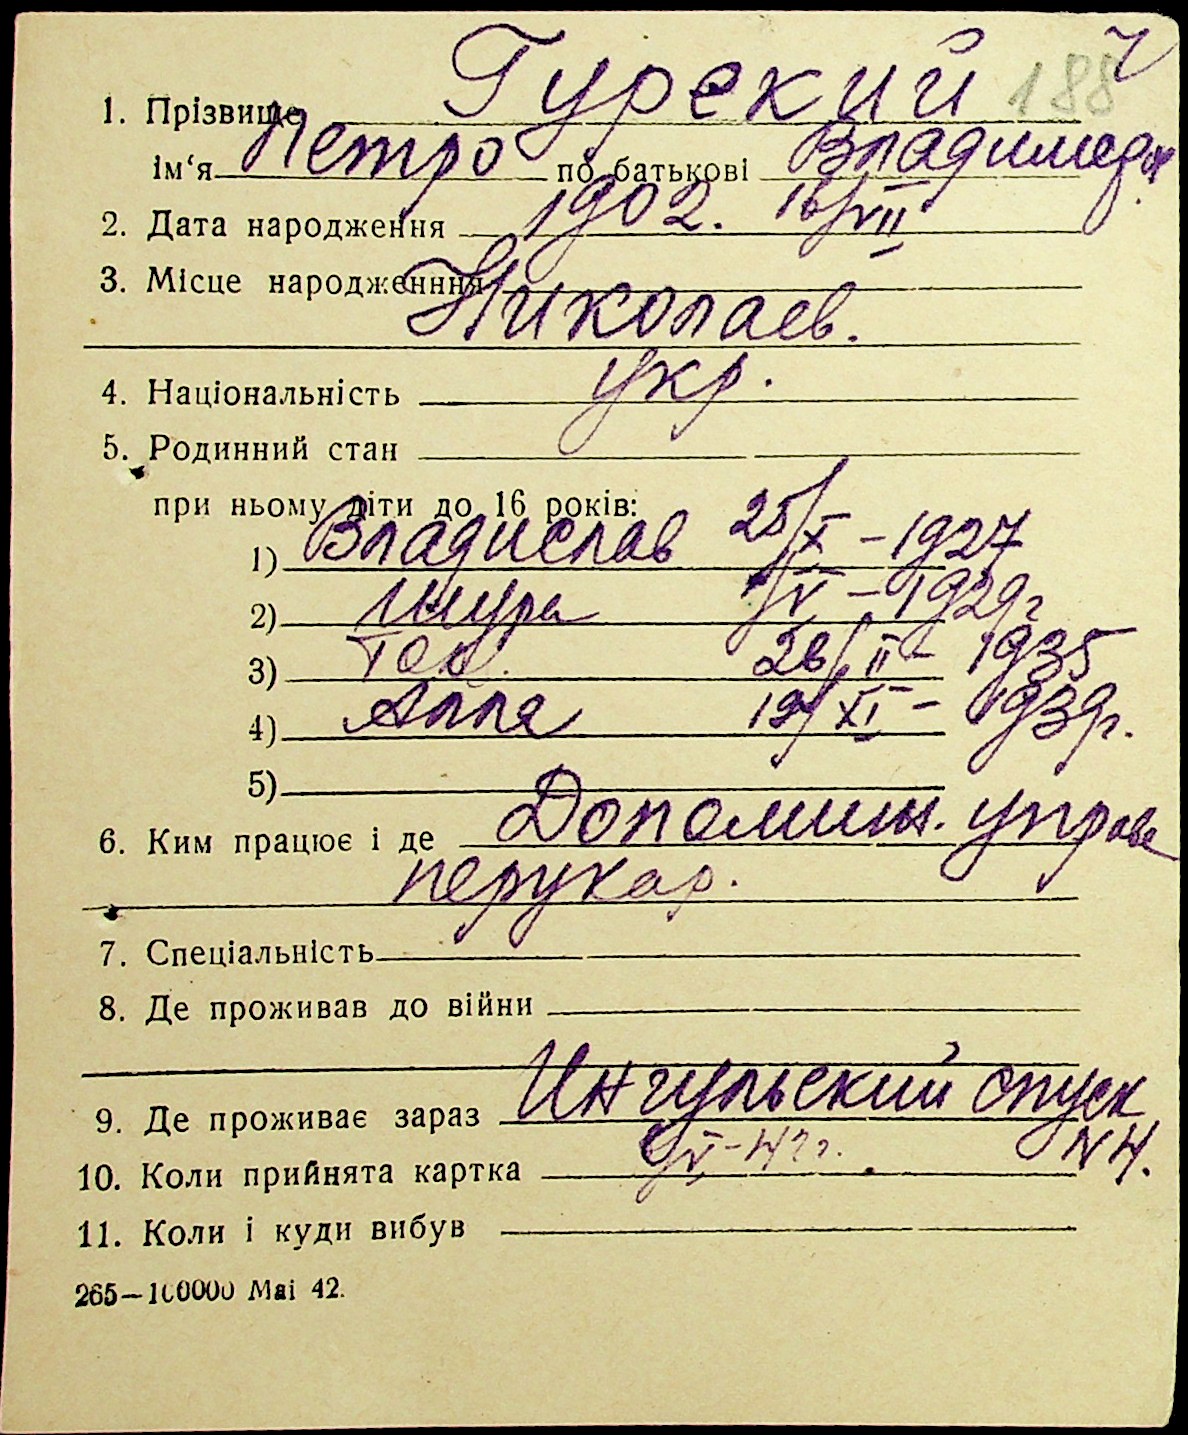 1. Прізвище Гурский 188
ім‘я Петро по батькові Владимиров
2. Дата народження 1902. 16/VII
3. Місце народженння
Николаев.
4. Національність укр.
5. Родинний стан
при ньому діти до 16 років:
1) Владислав 25/X – 1927
2) Шура /V – 1929г
3) 26/II – 1935
4) Алла 19/XI – 1939г.
5)
6. Ким працює і де Допомич. управе
перукар.
7. Спеціальність
8. Де проживав до війни
9. Де проживає зараз Ингульский спуск
N 4.
10. Коли прийнята картка /V – 42г.
11. Коли і куди вибув
265—100000 Маі 42.